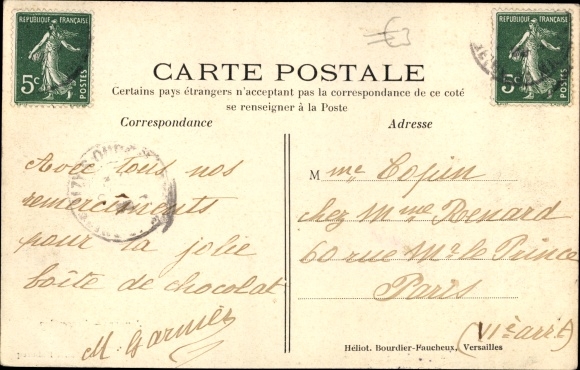 REPUBLIQUE FRANÇAISE
5c
POSTES
REPUBLIQUE FRANÇAISE
5c
POSTES
CARTE POSTALE
Certains pays étrangers n'acceptant pas la correspondance de ce coté
se renseigner à la Poste
Correspondance
Adresse
Avec tous nos
remerciements
pour la jolie
boîte de chocolat
M. Garnier
Mme Copin
chez Mme Renard
60 rue Mr le Prince
Paris
(VIe arrt)
Héliot. Bourdier-Faucheux, Versailles